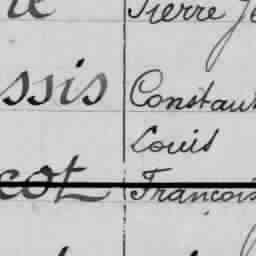 Pierre
ssis Constant
Louis
cot François